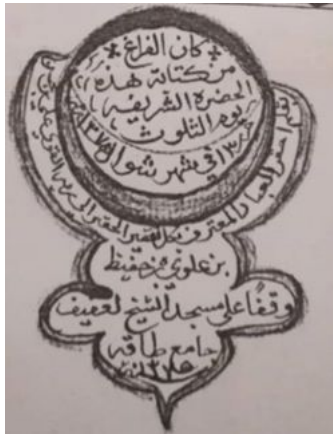 كان الفراغ
من كتابة هذه
الحضرة الشريفه
يوم الثلوث
١٣ في شهر شوال ١٣٧٥
بقلم احقر العباد المعترف بكل تقصير الحقير الى
بن علوي بن حفيظ
وقفًا على مسجد الشيخ لعفيف
جامع طاقه